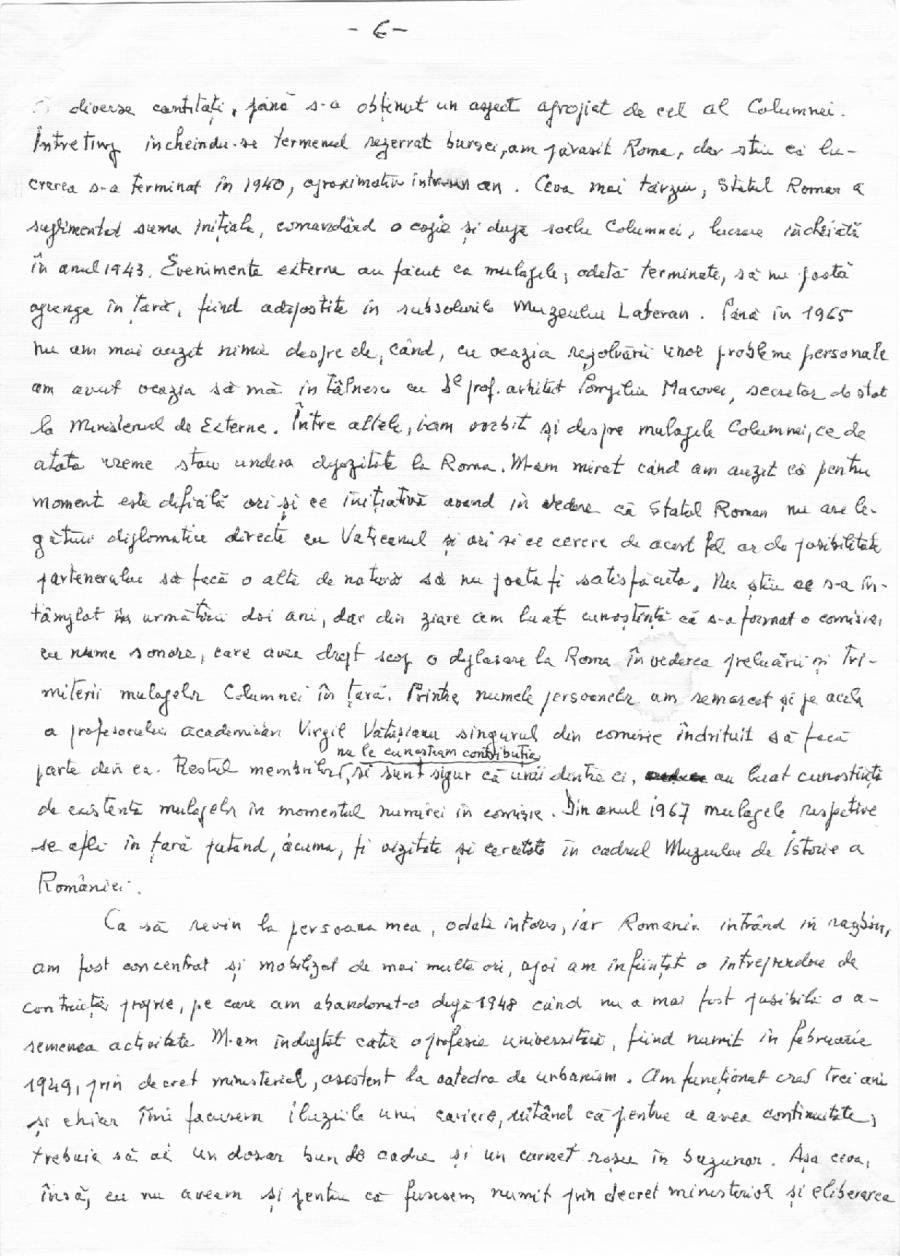 - 6 -
diverse cantități, până s-a obținut un aspect apropiat de cel al Columnei.
Între timp încheindu-se termenul rezervat bursei, am părăsit Roma, dar știu că lu-
crarea s-a terminat în 1940, aproximativ într-un an. Ceva mai târziu, Statul Roman a
suplimentat suma inițială, comandând o copie și după soclu Columnei, lucrare încheiată
în anul 1943. Evenimente externe au făcut ca mulagele, odată terminate, să nu poată
ajunge în țară, fiind adăpostite în subsolurile Muzeului Lateran. Până în 1965
nu am mai auzit nimic despre ele, când, cu ocazia rezolvării unor probleme personale
am avut ocazia să mă întâlnesc cu prof. arhitect Pompiliu Macovei, secretar de stat
la Ministerul de Externe. Între altele, i-am vorbit și despre mulagele Columnei, ce de
atâta vreme stau undeva depozitate la Roma. M-am mirat când am auzit că pentru
moment este dificilă ori și ce inițiativă avand în vedere că Statul Roman nu are le-
gături diplomatice directe cu Vaticanul și ori si ce cerere de acest fel ar da posibilitate
partenerului să facă o alta de natură să nu poata fi satisfăcuta. Nu știu ce s-a în-
tâmplat în următorii doi ani, dar din ziare am luat cunoștință că s-a format o comisie,
cu nume sonore, care avea drept scop o deplasare la Roma în vederea preluării și tri-
miterii mulagelor Columnei în țară. Printre numele persoanelor am remarcat și pe acela
a profesorului academician Virgil Vătășianu singurul din comisie îndrituit să facă
nu le cunoșteam contribuția
parte din ea. Restul membrilor, și sunt sigur că unii dintre ei, au luat cunoștință
de existența mulagelor în momentul numirei in comisie. Din anul 1967 mulagele respective
se afla în țară putând, acuma, fi vizitate și cercetate în cadrul Muzeului de Istorie a
României.
Ca să revin la persoana mea, odată intors, iar Romania intrând in razboiu,
am fost concentrat și mobilizat de mai multe ori, apoi am înființat o întreprindere de
construcții proprie, pe care am abandonat-o după 1948 când nu a mai fost posibilă o a-
semenea activitate. M-am îndreptat catre o profesie universitară, fiind numit în februarie
1949, prin decret ministerial, asistent la catedra de urbanism. Am funcționat cred trei ani
și chiar îmi facusem iluziile unei cariere, uitând că pentru a avea continuitate,
trebuia să ai un dosar bun de cadre și un carnet roșu în buzunar. Așa ceva,
însă, eu nu aveam și pentru că fusesem numit prin decret ministerial și eliberarea